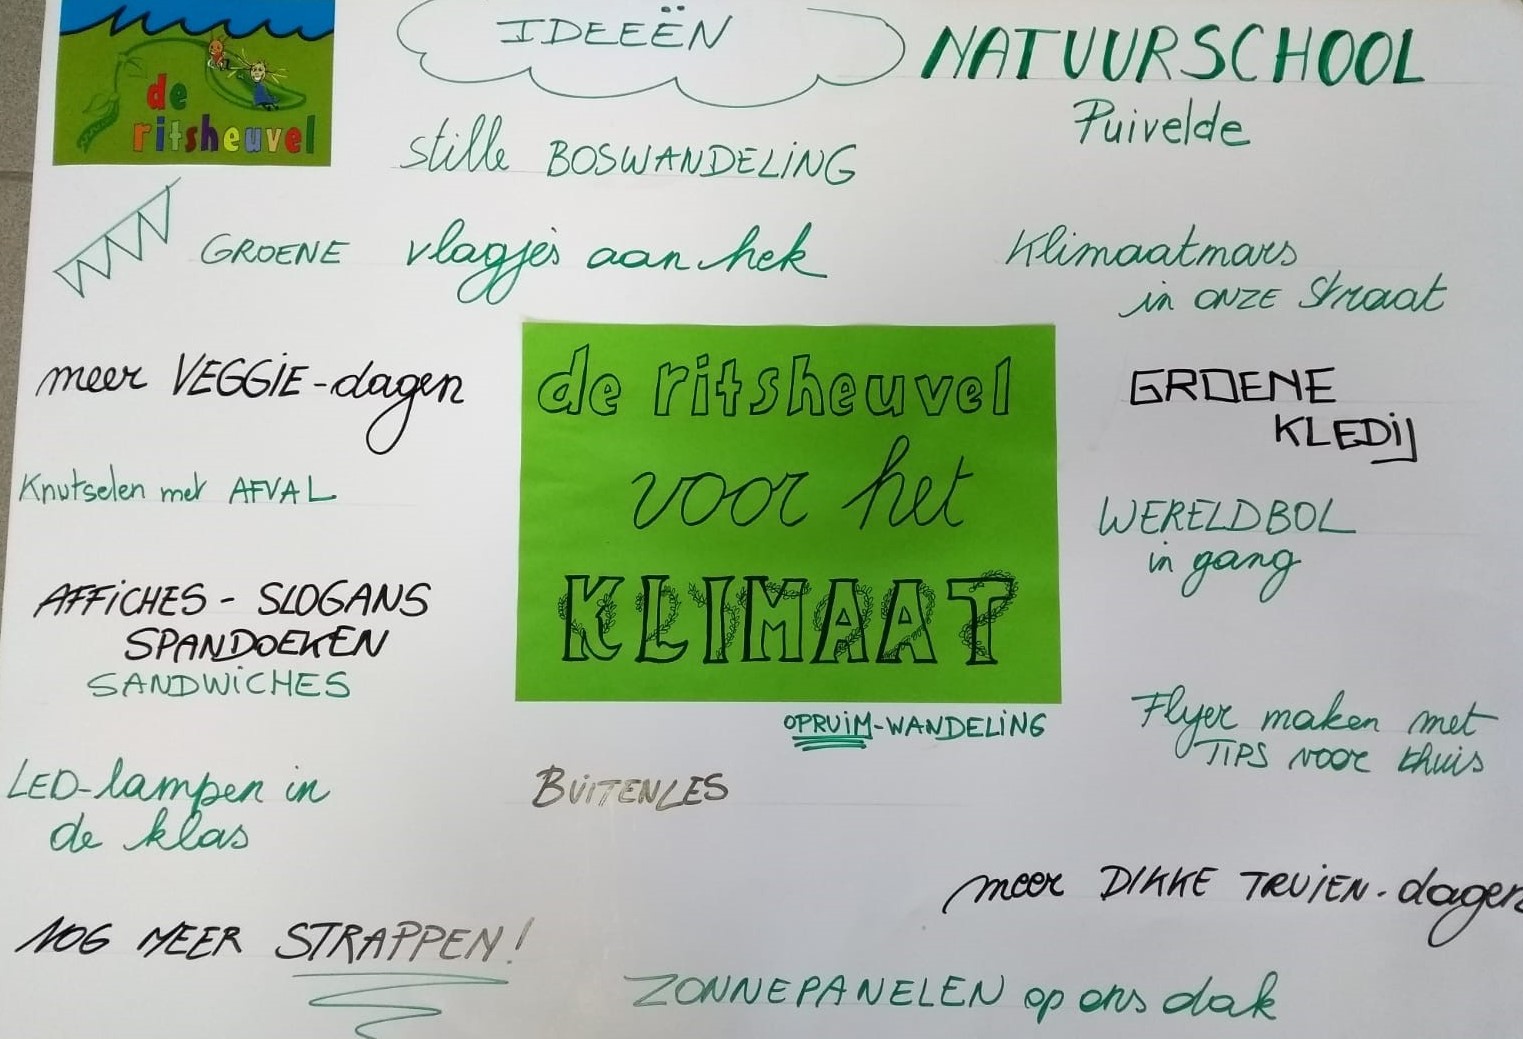 de
ritsheuvel
IDEEËN
NATUURSCHOOL
Puivelde
stille BOSWANDELING
GROENE vlagjes aan hek
Klimaatmars
in ONZE straat
meer VEGGIE-dagen
de ritsheuvel
voor het
KLIMAAT
GROENE
KLEDIJ
Knutselen met AFVAL
WERELDBOL
in gang
AFFICHES - SLOGANS
SPANDOEKEN
SANDWICHES
OPRUIM-WANDELING
Flyer maken met
TIPS voor thuis
LED-lampen in
de klas
BUITENLES
meer DIKKE TRUIEN-dagen
NOG MEER STRAPPEN!
ZONNEPANELEN op ons dak